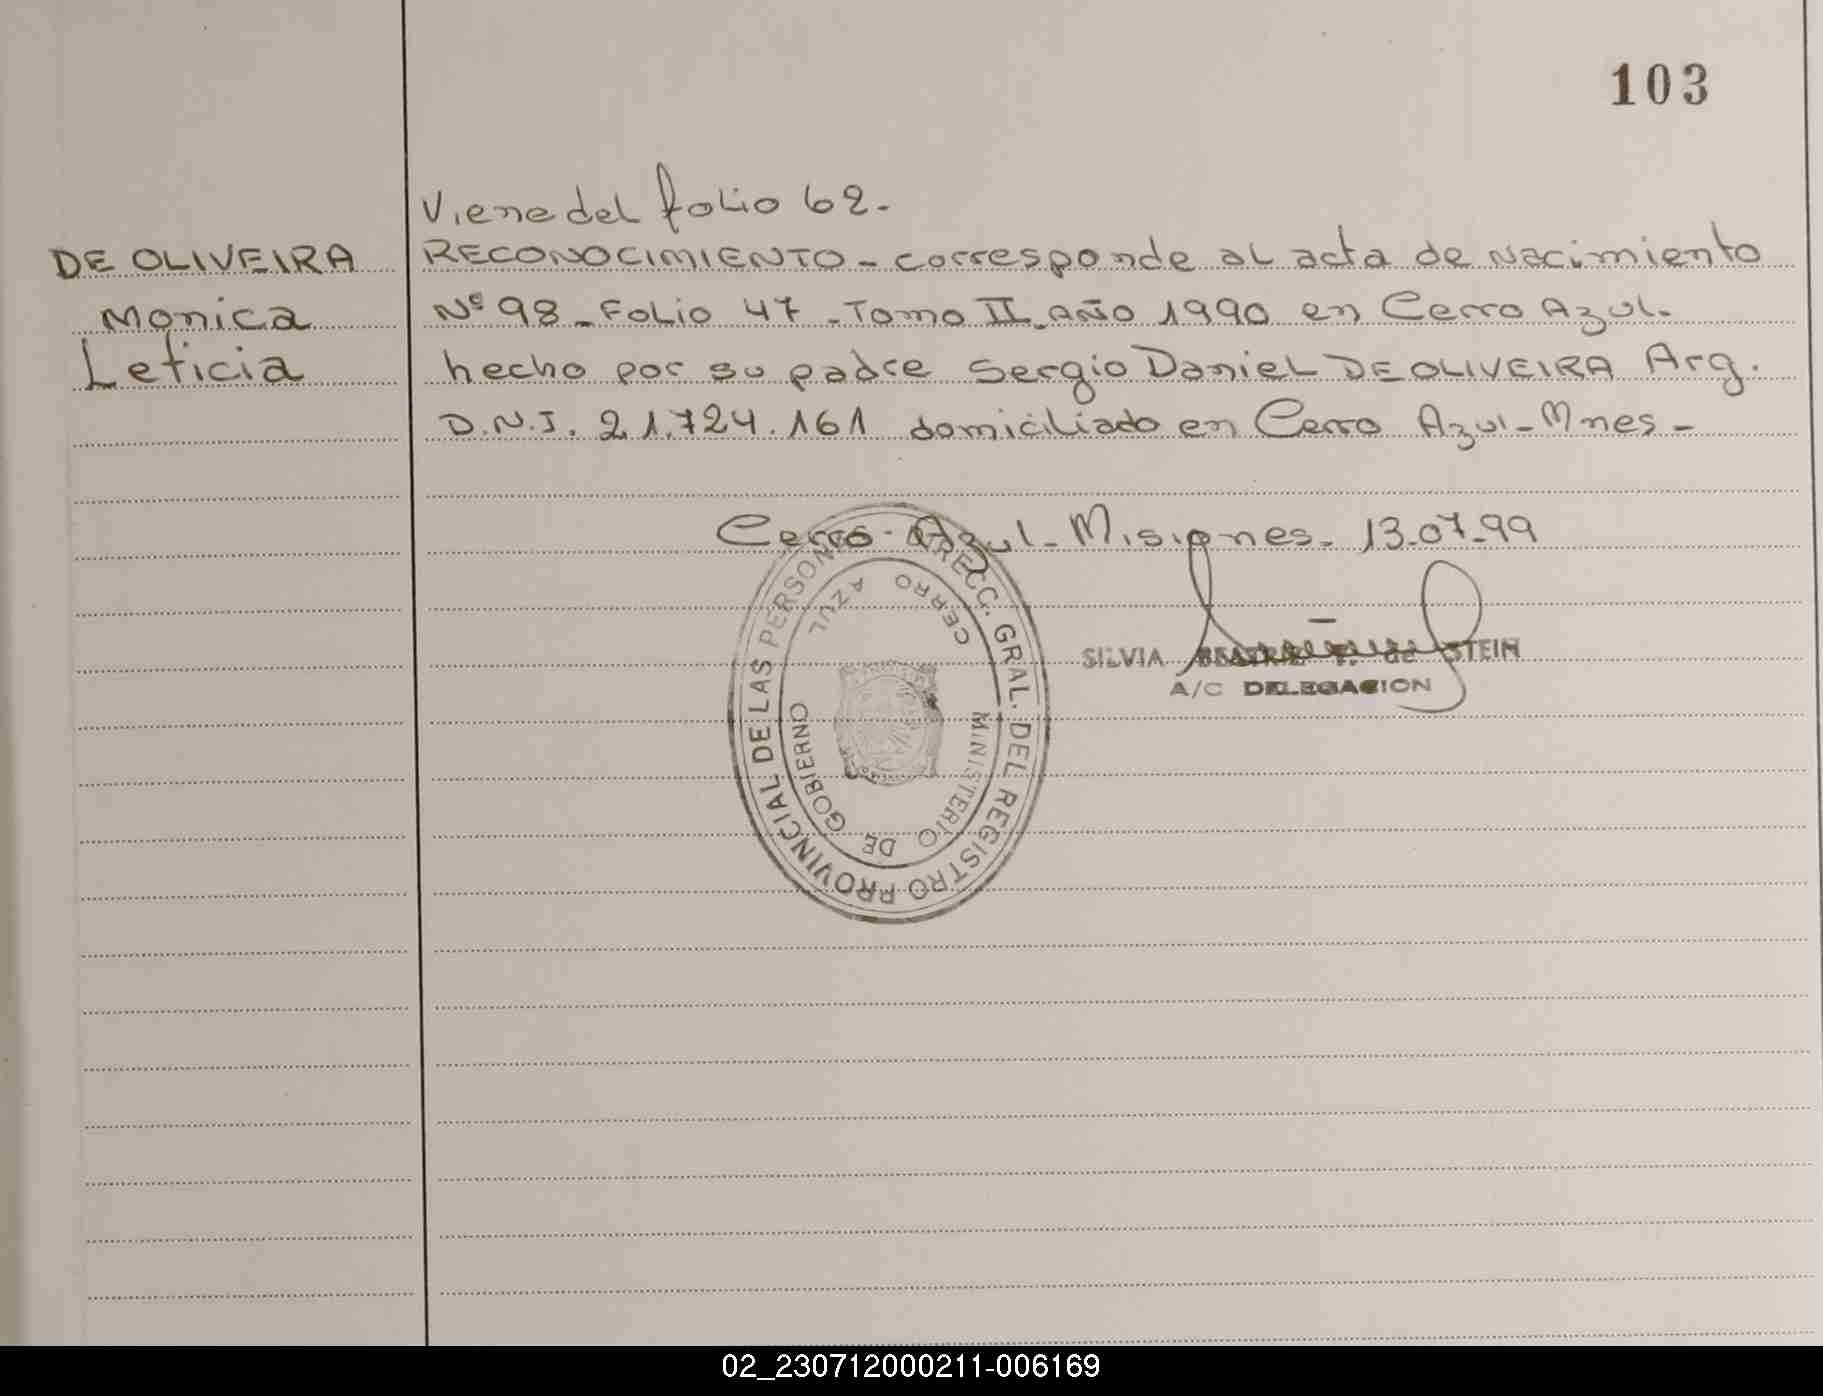 103
Viene del folio 62.
DE OLIVEIRA
Monica
Leticia
RECONOCIMIENTO - corresponde al acta de Nacimiento
Nº 98 - Folio 47 - Tomo II - año 1990 en Cerro Azul.
hecho por su padre Sergio Daniel DE OLIVEIRA Arg.
D.N.I. 21.724.161 domiciliado en Cerro Azul - Mnes -
Cerro Azul - Misiones - 13-07-99
SILVIA de STEIN
A/C DELEGACION
DIRECC. GRAL. DEL REGISTRO PROVINCIAL DE LAS PERSONAS
MINISTERIO DE GOBIERNO
CERRO AZUL
02_230712000211-006169